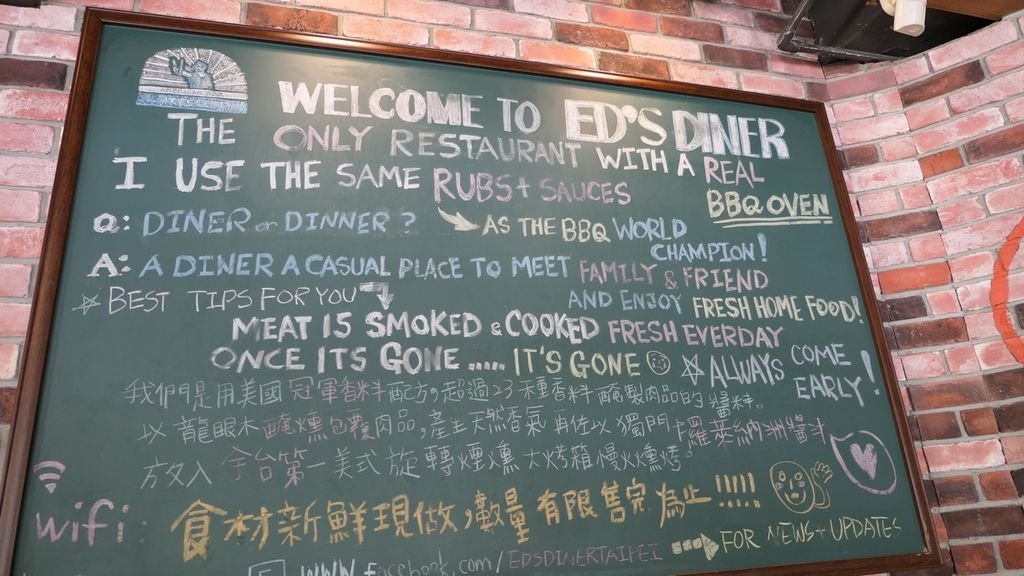 WELCOME TO ED'S DINER
THE ONLY RESTAURANT WITH A REAL
BBQ OVEN
I USE THE SAME RUBS + SAUCES
AS THE BBQ WORLD
CHAMPION!
Q: DINER or DINNER?
A: A DINER A CASUAL PLACE TO MEET FAMILY & FRIEND
AND ENJOY FRESH HOME FOOD!
☆ BEST TIPS FOR YOU
MEAT IS SMOKED & COOKED FRESH EVERDAY
ONCE ITS GONE ..... IT'S GONE
☆ ALWAYS COME
EARLY!
我們是用美國冠軍香料配方,超過23種香料醃製肉品的醬料.
以龍眼木醃燻包覆肉品,產生天然香氣再佐以獨門卡羅萊納洲醬汁
放入全台第一美式旋轉煙燻大烤箱慢火燻烤.
食材新鮮現做,數量有限售完為止!!!!!
wifi:
FOR NEWS + UPDATES
www.facebook.com/EDSDINERTAIPEI